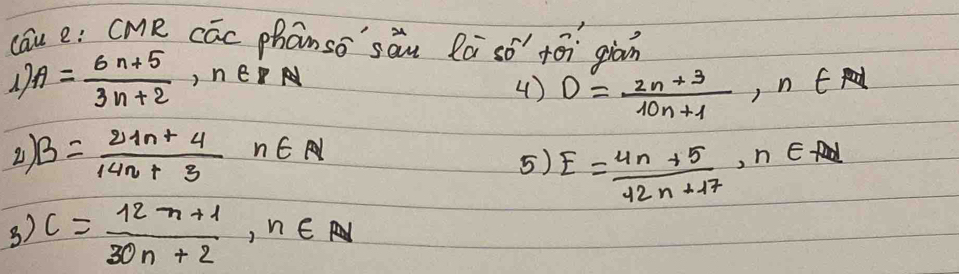 Câu 2: CMR các phân số sau là số tối giản
1) A = \frac{6n+5}{3n+2}, n ∈ N
2) B = \frac{21n+4}{14n+3} n ∈ N
3) C = \frac{12n+1}{30n+2}, n ∈ N
4) D = \frac{2n+3}{10n+1}, n ∈ N
5) E = \frac{4n+5}{12n+17}, n ∈ N